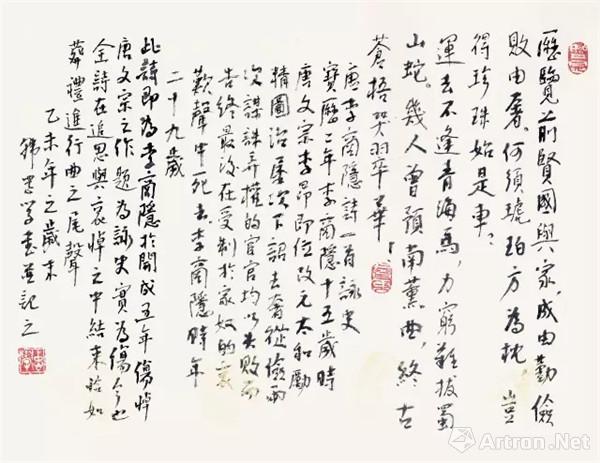 歷覽前賢國與家,成由勤儉
敗由奢。何須琥珀方為枕,豈
得珍珠始是車。
運去不逢青海馬,力窮難拔蜀
山蛇。幾人曾預南薰曲,終古
蒼梧哭翠華。
唐李商隱詩一首 詠史
寶歷二年李商隱十五歲時
唐文宗李昂即位改元太和勵
精圖治屢次下詔去奢從儉兩
次謀誅弄權的宦官均以失敗而
告終最後在受制於家奴的哀
歎聲中死去李商隱時年
二十九歲
此詩即為李商隱於開成五年傷悼
唐文宗之作題為詠史實為傷今也
全詩在追思與哀悼之中結束恰如
葬禮進行曲之尾聲
乙未年之歲末
書並記之
Artron.Net